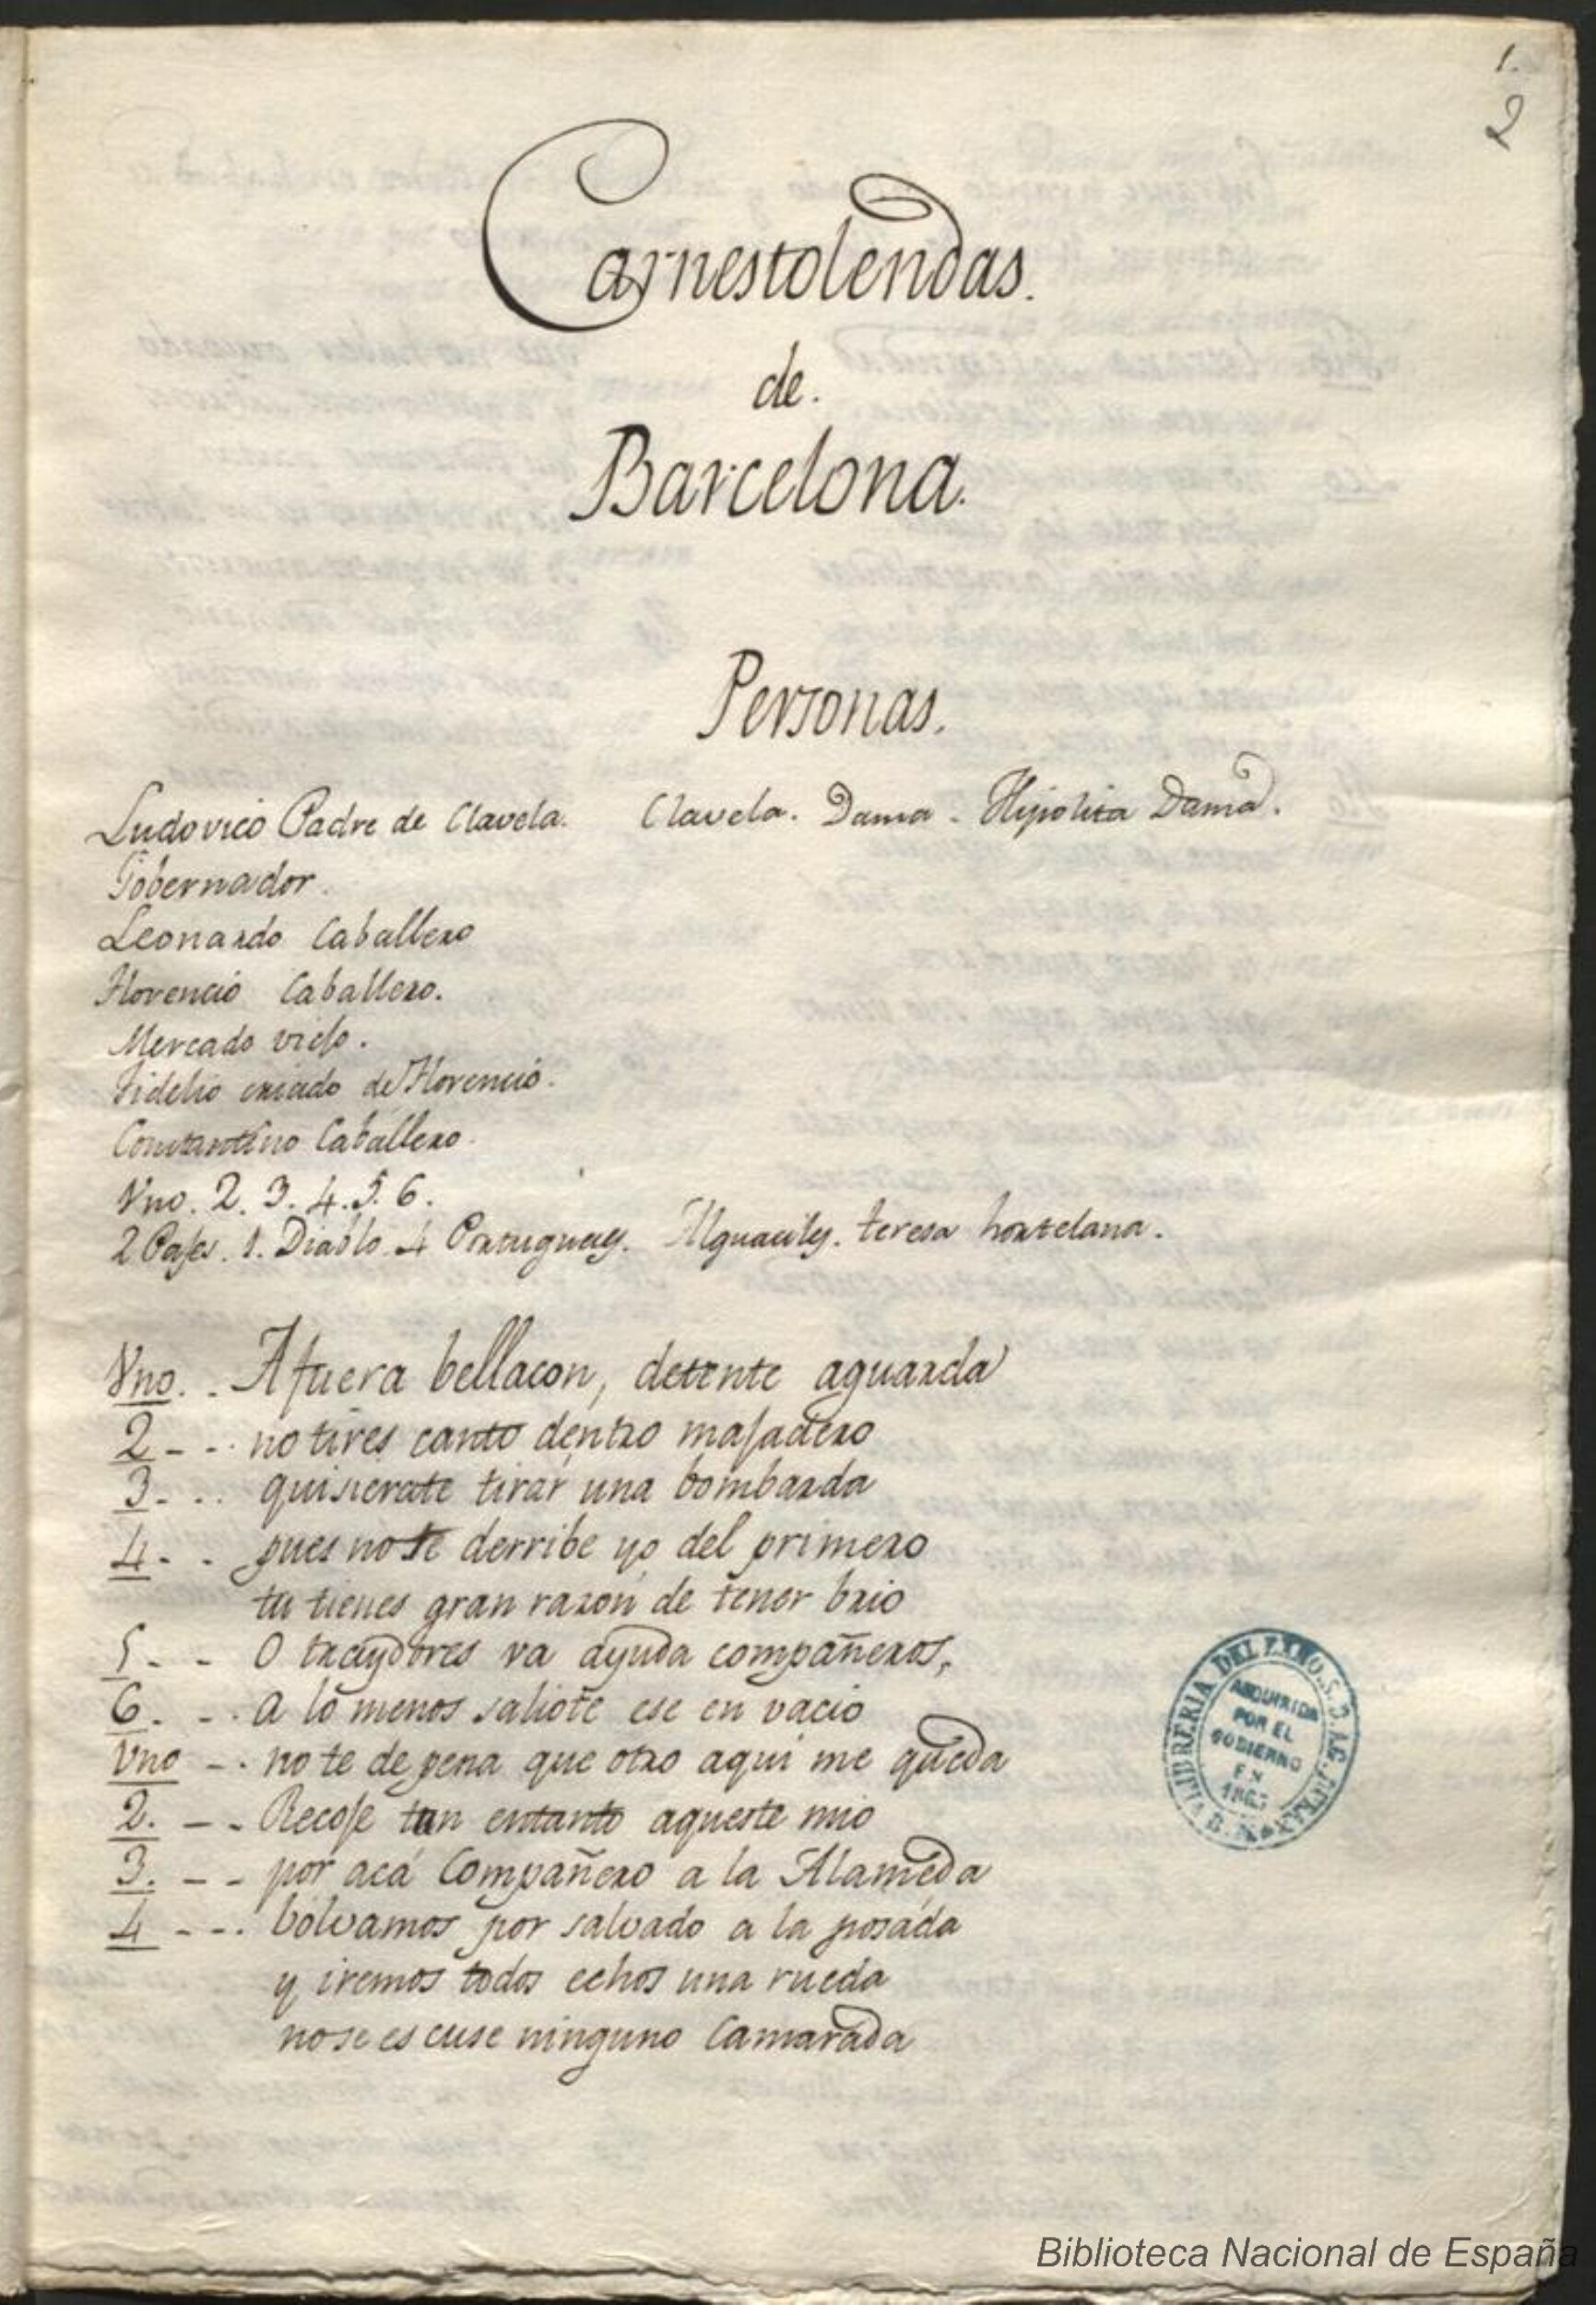 1.
2
Carnestolendas.
de.
Barcelona.
Personas.
Ludovico Padre de Clavela. Clavela. Dama - Hipolita Dama.
Gobernador.
Leonardo Caballero
Florencio Caballero.
Mercado viejo.
Fidelio criado de Florencio.
Constantino Caballero.
Vno. 2. 3. 4. 5. 6.
2 Pajes. 1. Diablo 4 Portugueses. Alguaciles. teresa hortelana.
Vno. . Afuera bellacon, detente aguarda
2 - - . no tires canto dentro majadero
3. . . quisierate tirar una bombarda
4. . pues no te derribe yo del primero
tu tienes gran razon de tener brio
5. - O traydores va ayuda compañeros,
6. - . A lo menos saliote ese en vacio
Vno - . no te de pena que otro aqui me queda
2. - - Recoje tan entanto aqueste mio
3. - - por acá Compañero a la Alameda
4 - - . bolvamos por salvado a la posada
y iremos todos echos una rueda
no se escuse ninguno Camarada
LIBRERIA DEL EXMO. S. D. A. DURAN
ADQUIRIDA
POR EL
GOBIERNO
EN
1863
B. N.
Biblioteca Nacional de España